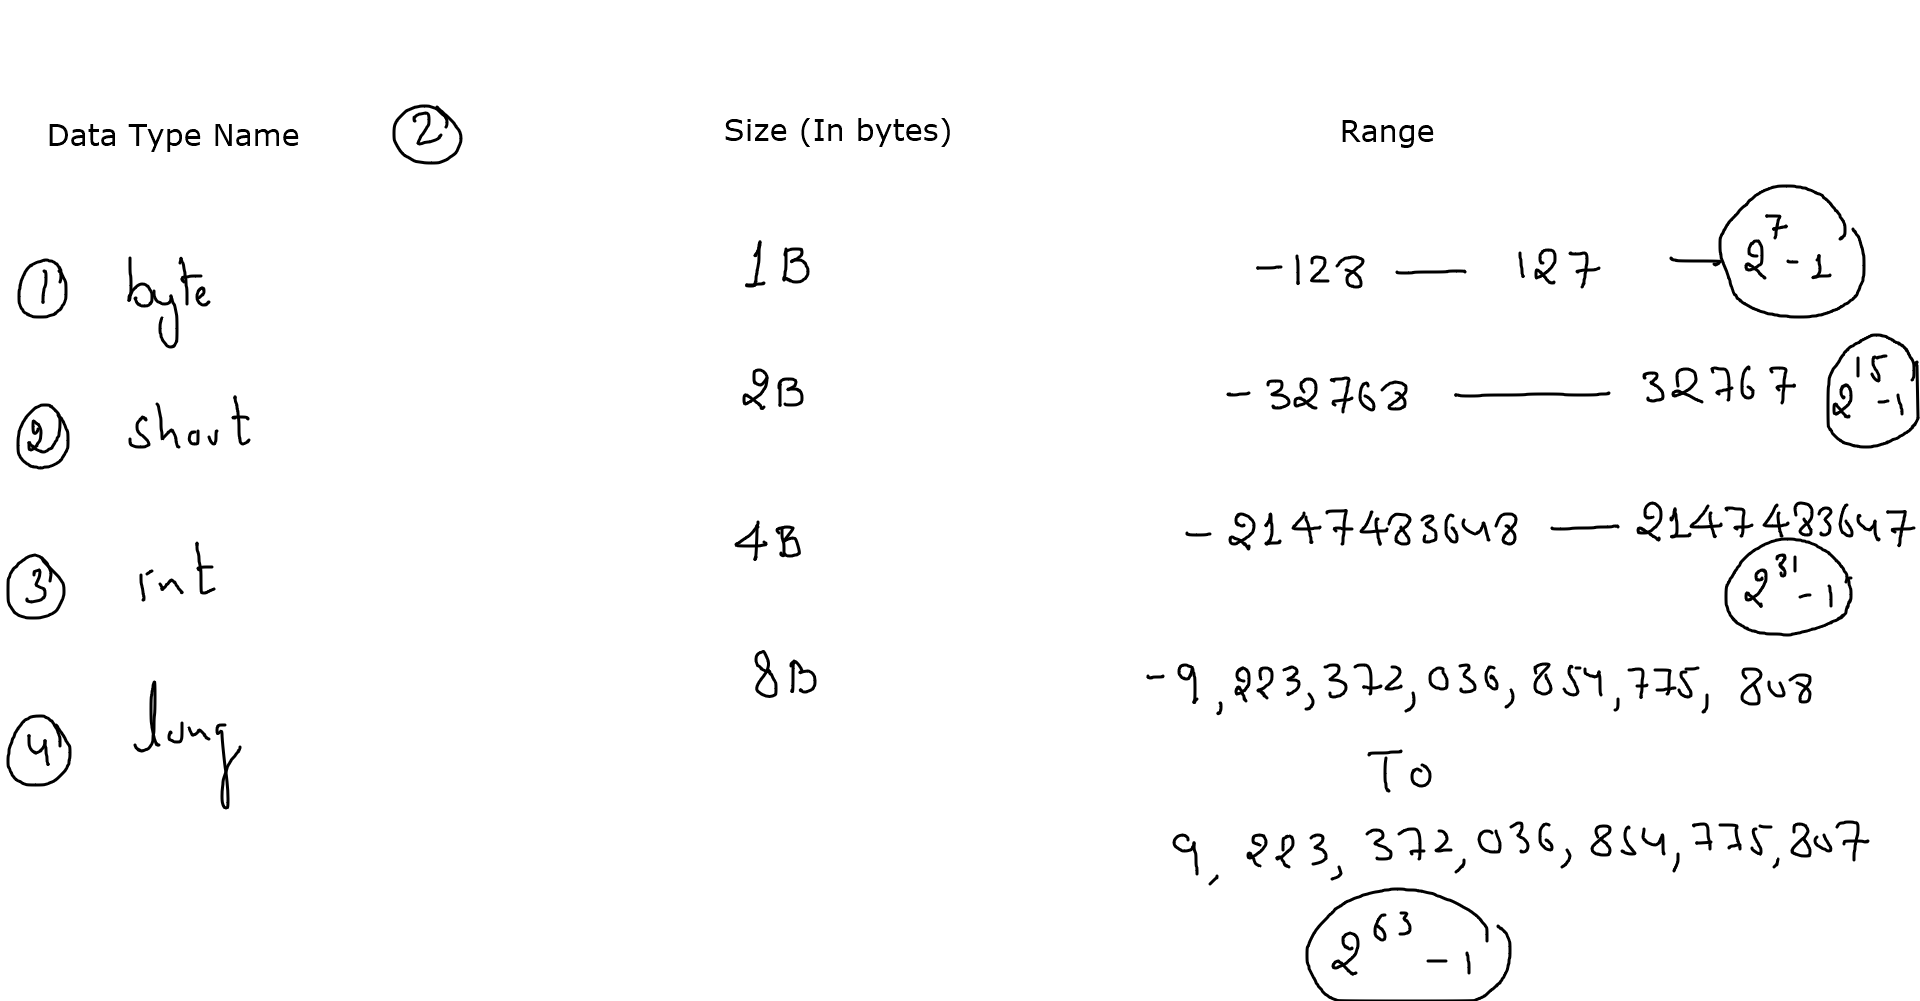 Data Type Name ② Size (In bytes) Range
① byte 1B -128 — 127 — 2⁷-1
② short 2B -32768 — 32767 2¹⁵-1
③ int 4B -2147483648 — 2147483647
2³¹-1
④ long 8B -9,223,372,036,854,775,808
To
9,223,372,036,854,775,807
2⁶³-1